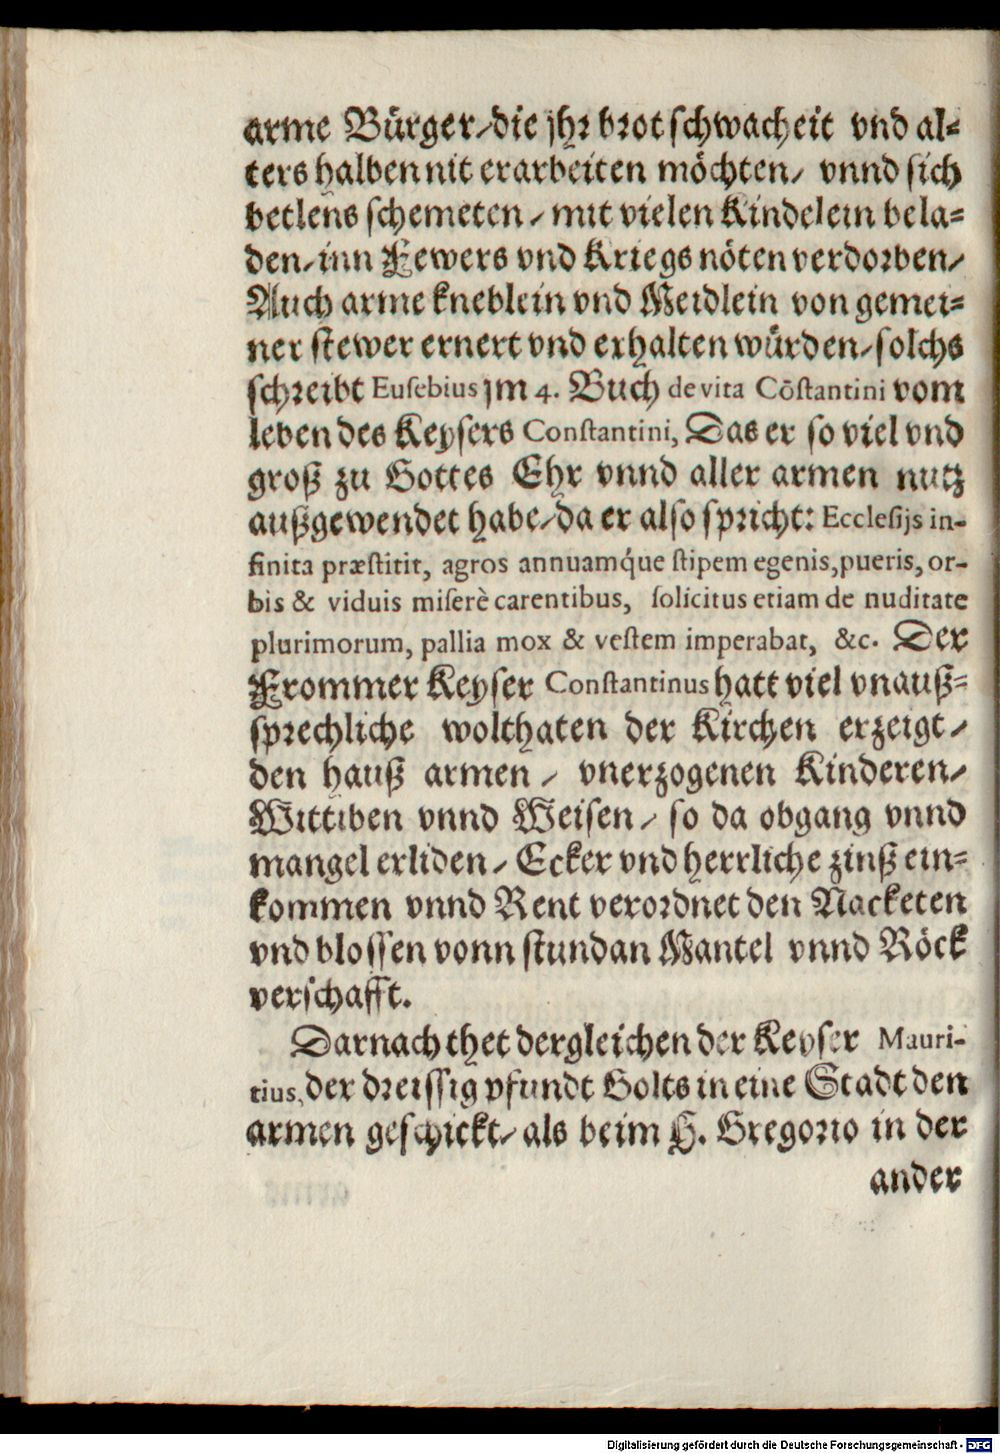 arme Bürger/die jhr brot schwacheit vnd al-
ters halben nit erarbeiten möchten/ vnnd sich
betlens schemeten/ mit vielen Kindelein bela-
den/inn Fewers vnd Kriegs nöten verdorben/
Auch arme kneblein vnd Meidlein von gemei-
ner stewer ernert vnd erhalten würden/solchs
schreibt Eusebius jm 4. Buch de vita Cõstantini vom
leben des Keysers Constantini, Das er so viel vnd
groß zu Gottes Ehr vnnd aller armen nutz
außgewendet habe/da er also spricht: Ecclesijs in-
finita præstitit, agros annuamq́ue stipem egenis, pueris, or-
bis & viduis miserè carentibus, solicitus etiam de nuditate
plurimorum, pallia mox & vestem imperabat, &c. Der
Frommer Keyser Constantinus hatt viel vnauß-
sprechliche wolthaten der Kirchen erzeigt/
den hauß armen/ vnerzogenen Kinderen/
Wittiben vnnd Weisen/ so da obgang vnnd
mangel erliden/ Ecker vnd herrliche zinß ein-
kommen vnnd Rent verordnet den Nacketen
vnd blossen vonn stundan Mantel vnnd Röck
verschafft.
Darnach thet dergleichen der Keyser Mauri-
tius, der dreissig pfundt Golts in eine Stadt den
armen geschickt/ als beim H. Gregorio in der
ander
Digitalisierung gefördert durch die Deutsche Forschungsgemeinschaft - DFG